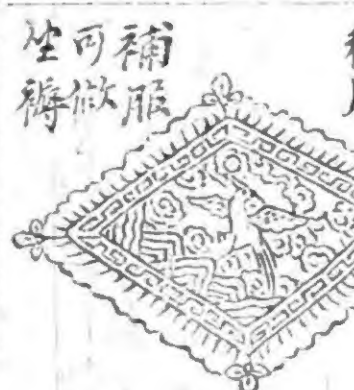 補服
可做
坐褥